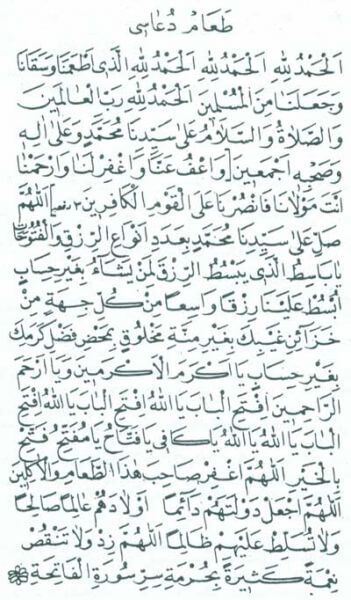 طَعَامْ دُعَاسِى
اَلْحَمْدُ لِلّٰهِ اَلْحَمْدُ لِلّٰهِ اَلْحَمْدُ لِلّٰهِ الَّذِى اَطْعَمَنَا وَسَقَانَا
وَجَعَلَنَا مِنَ الْمُسْلِمِينَ اَلْحَمْدُ لِلّٰهِ رَبِّ الْعَالَمِينَ
وَالصَّلَاةُ وَالسَّلَامُ عَلَى سَيِّدِنَا مُحَمَّدٍ وَعَلَى اٰلِهِ
وَصَحْبِهِ اَجْمَعِينَ [وَاعْفُ عَنَّا وَاغْفِرْ لَنَا وَارْحَمْنَا
اَنْتَ مَوْلَانَا فَانْصُرْنَا عَلَى الْقَوْمِ الْكَافِرِينَ ٣] اَللّٰهُمَّ
صَلِّ عَلَى سَيِّدِنَا مُحَمَّدٍ بِعَدَدِ اَنْوَاعِ الرِّزْقِ وَالْفُتُوحَاتِ
يَا بَاسِطُ الَّذِى يَبْسُطُ الرِّزْقَ لِمَنْ يَشَاءُ بِغَيْرِ حِسَابٍ
اُبْسُطْ عَلَيْنَا رِزْقًا وَاسِعًا مِنْ كُلِّ جِهَةٍ مِنْ
خَزَائِنِ غَيْبِكَ بِغَيْرِ مِنَّةِ مَخْلُوقٍ بِمَحْضِ فَضْلِ كَرَمِكَ
بِغَيْرِ حِسَابٍ يَا اَكْرَمَ الْاَكْرَمِينَ وَيَا اَرْحَمَ
الرَّاحِمِينَ اِفْتَحِ الْبَابَ يَا اَللّٰهُ اِفْتَحِ الْبَابَ يَا اَللّٰهُ اِفْتَحِ
الْبَابَ يَا اَللّٰهُ يَا اَللّٰهُ يَا كَافِى يَا فَتَّاحُ يَا مُفَتِّحُ فَتِّحْ
بِالْخَيْرِ اَللّٰهُمَّ اغْفِرْ صَاحِبَ هٰذَا الطَّعَامِ وَالْاٰكِلِينَ
اَللّٰهُمَّ اجْعَلْ دَوْلَتَهُمْ دَائِمًا اَوْلَادَهُمْ عَالِمًا صَالِحًا
وَلَا تُسَلِّطْ عَلَيْهِمْ ظَالِمًا اَللّٰهُمَّ زِدْ وَلَا تَنْقُصْ
نِعْمَةً كَثِيرَةً بِحُرْمَةِ سِرِّ سُورَةِ الْفَاتِحَةِ